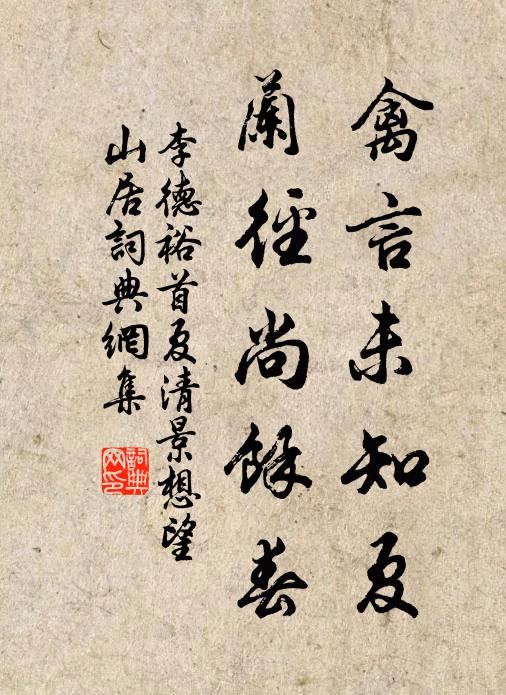 禽言未知夏
蘭徑尚餘春
李德裕首夏清景想望
山居詞典網集
詞典
网印